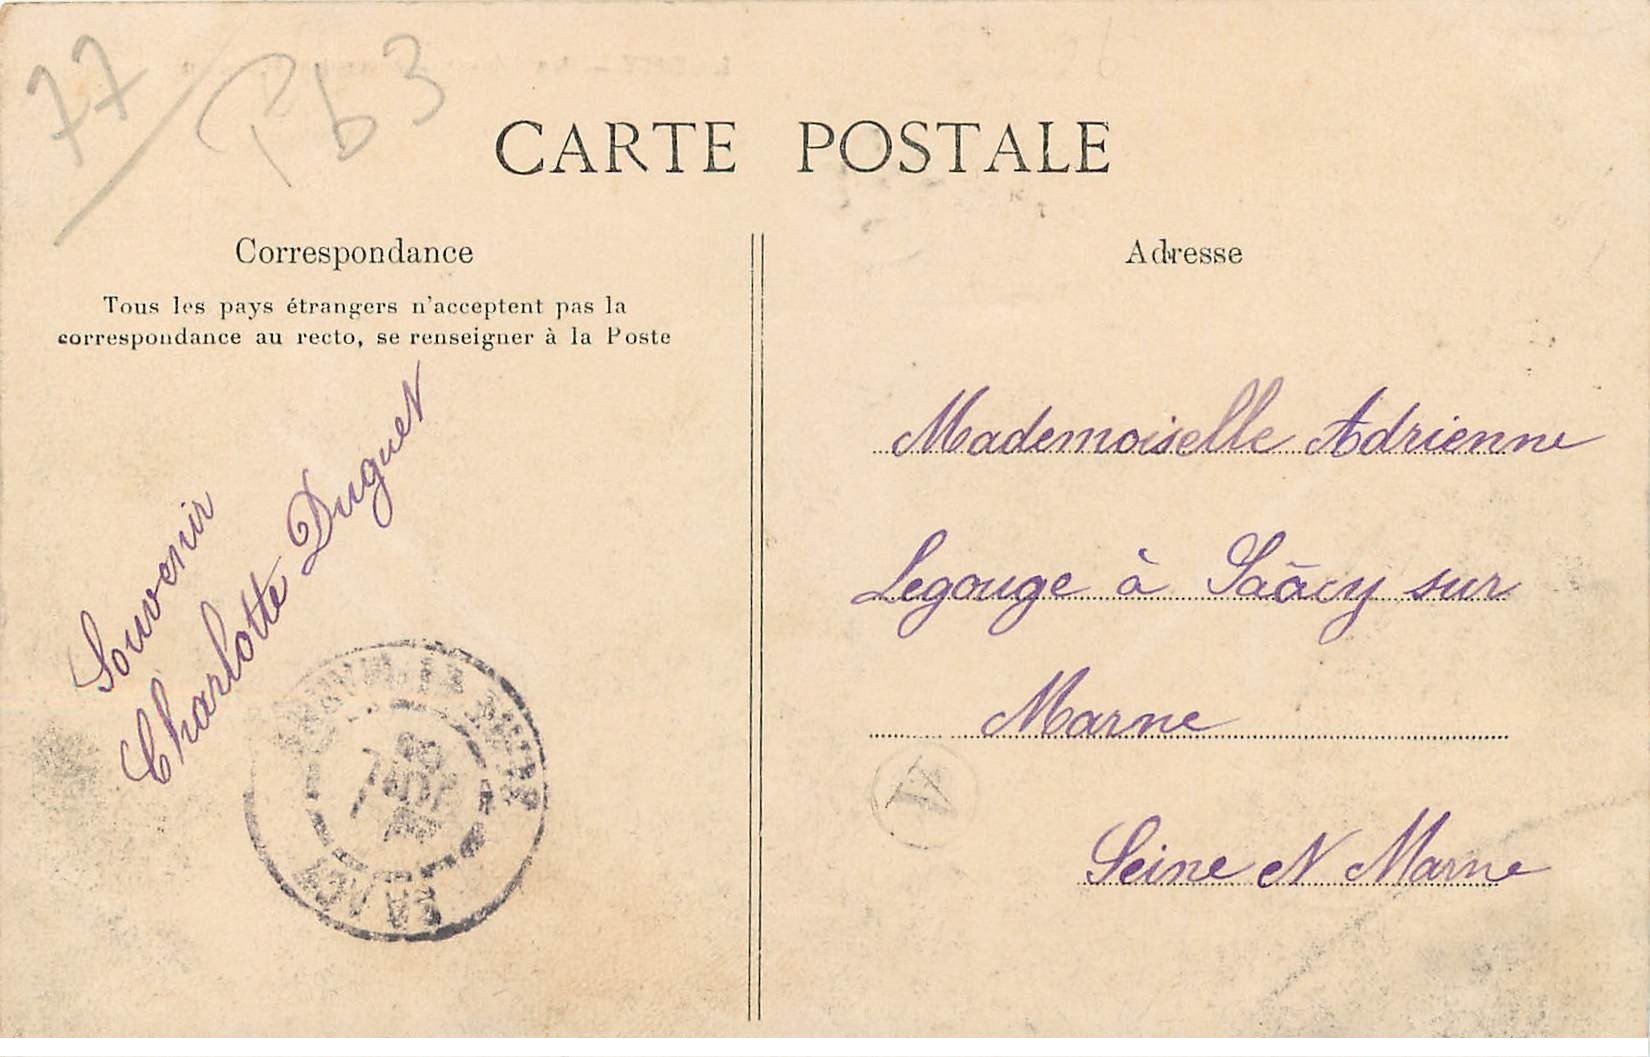 77
Pb3
CARTE POSTALE
Correspondance
Tous les pays étrangers n'acceptent pas la
correspondance au recto, se renseigner à la Poste
Souvenir
Charlotte Duguet
SAACY
Adresse
Mademoiselle Adrienne
Legouge à Saâcy sur
Marne
Seine et Marne
A